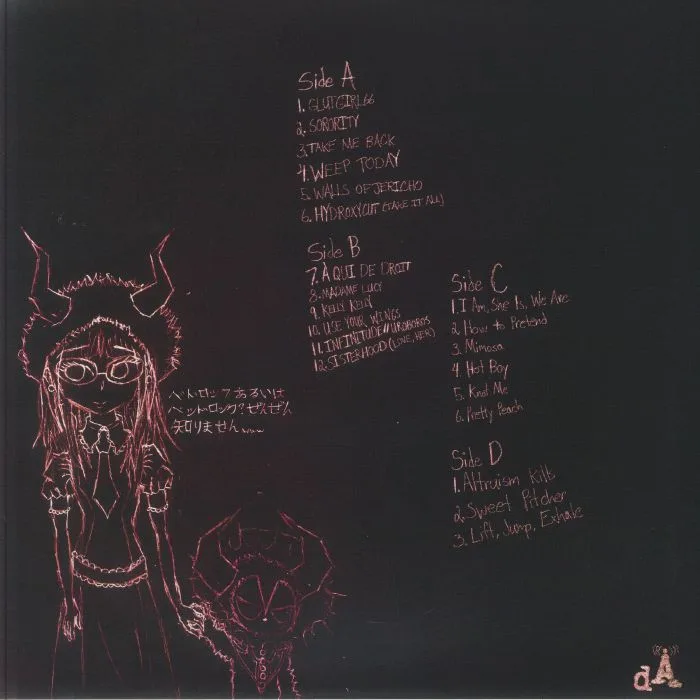 Side A
1. GLUTGIRL66
2. SORORITY
3. TAKE ME BACK
4. WEEP TODAY
5. WALLS OF JERICHO
6. HYDROXYCUT (TAKE IT ALL)
Side B
7. À QUI DE DROIT
8. MADAME LUCY
9. KELLY KELLY
10. USE YOUR WINGS
11. INFINITUDE//UROBOROS
12. SISTERHOOD (LOVE, HER)
Side C
1. I Am, She Is, We Are
2. How to Pretend
3. Mimosa
4. Hot Boy
5. Knot Me
6. Pretty Peach
Side D
1. Altruism Kills
2. Sweet Pitcher
3. Lift, Jump, Exhale
ベドロック あるいは
ベッドロック? ぜんぜん
知りません
dA